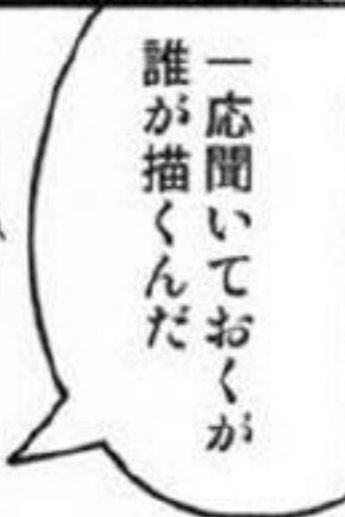 一応聞いておくが
誰が描くんだ